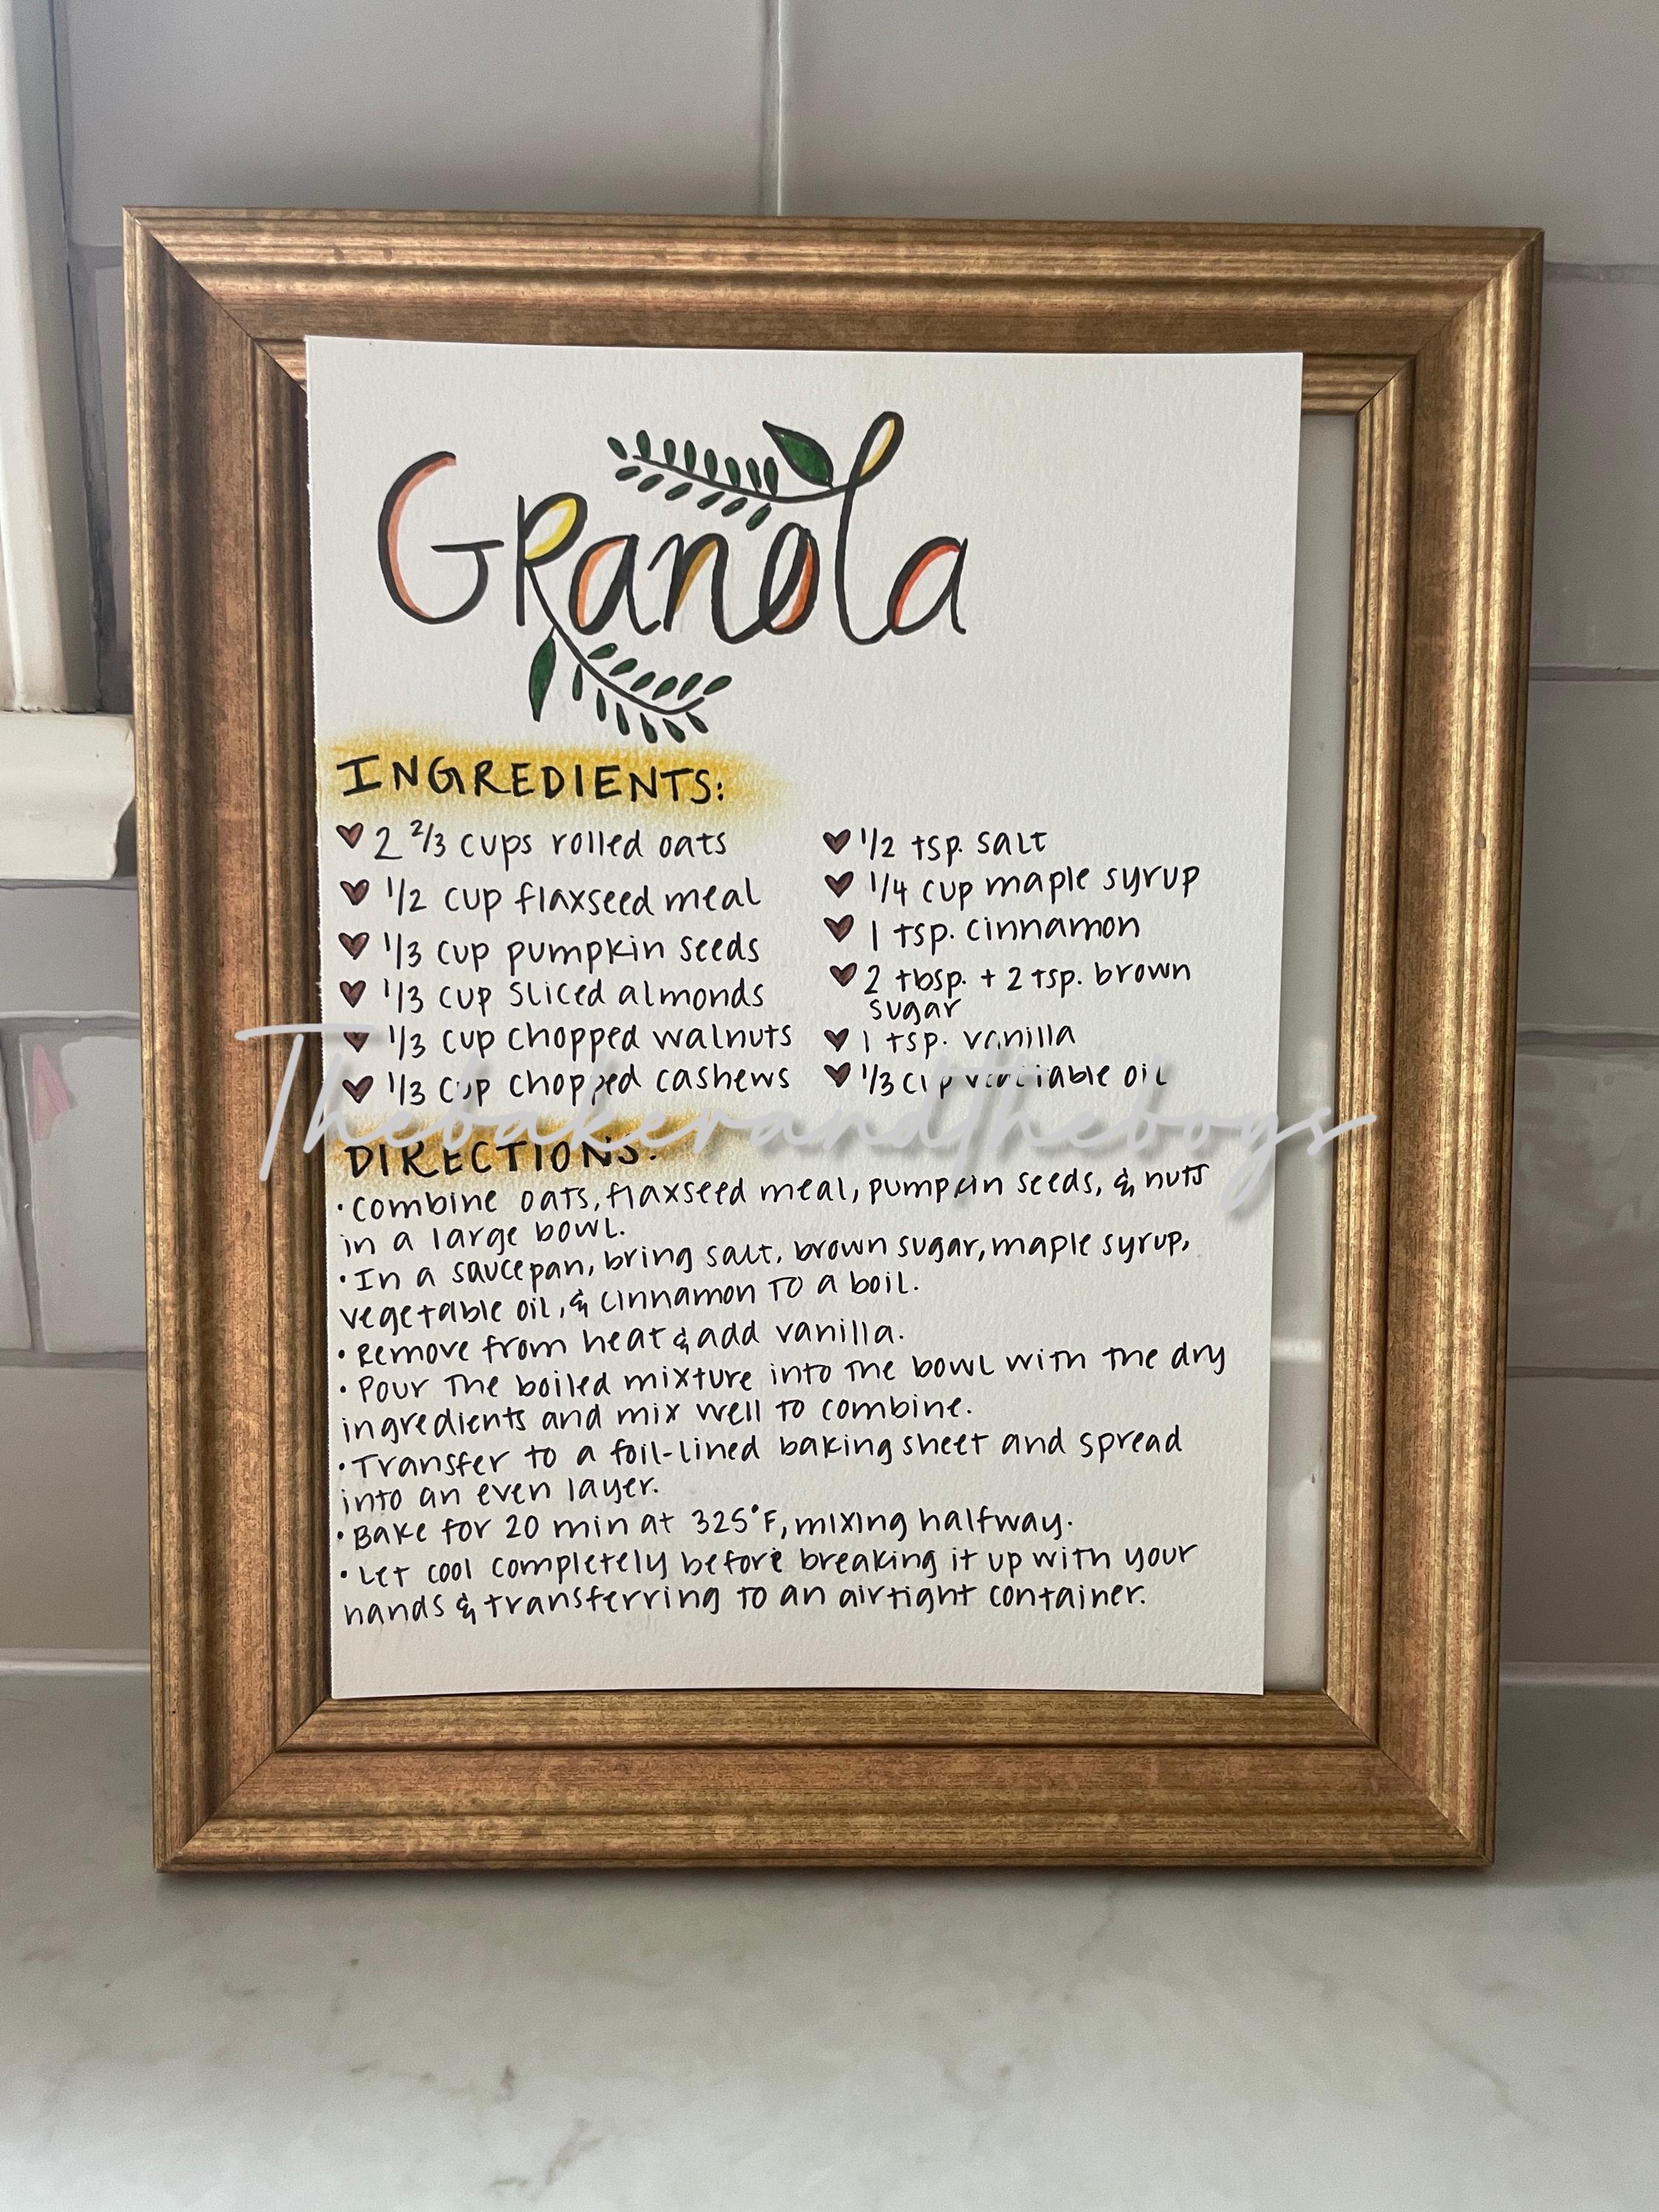 Granola
INGREDIENTS:
2 2/3 cups rolled oats
1/2 cup flaxseed meal
1/3 cup pumpkin seeds
1/3 cup sliced almonds
1/3 cup chopped walnuts
1/3 cup chopped cashews
1/2 tsp. salt
1/4 cup maple syrup
1 tsp. cinnamon
2 tbsp. + 2 tsp. brown
sugar
1 tsp. vanilla
1/3 cup vegetable oil
Thebakerandtheboys
DIRECTIONS:
• Combine oats, flaxseed meal, pumpkin seeds, & nuts
in a large bowl.
• In a saucepan, bring salt, brown sugar, maple syrup,
vegetable oil, & cinnamon to a boil.
• Remove from heat & add vanilla.
• Pour the boiled mixture into the bowl with the dry
ingredients and mix well to combine.
• Transfer to a foil-lined baking sheet and spread
into an even layer.
• Bake for 20 min at 325°F, mixing halfway.
• Let cool completely before breaking it up with your
hands & transferring to an airtight container.